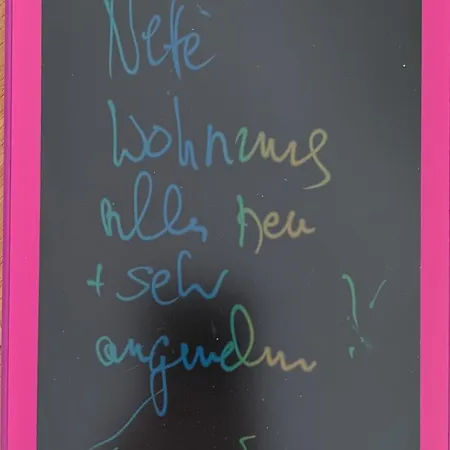 Nete
Wohnung
Alles neu
+ sehr
angenehm !